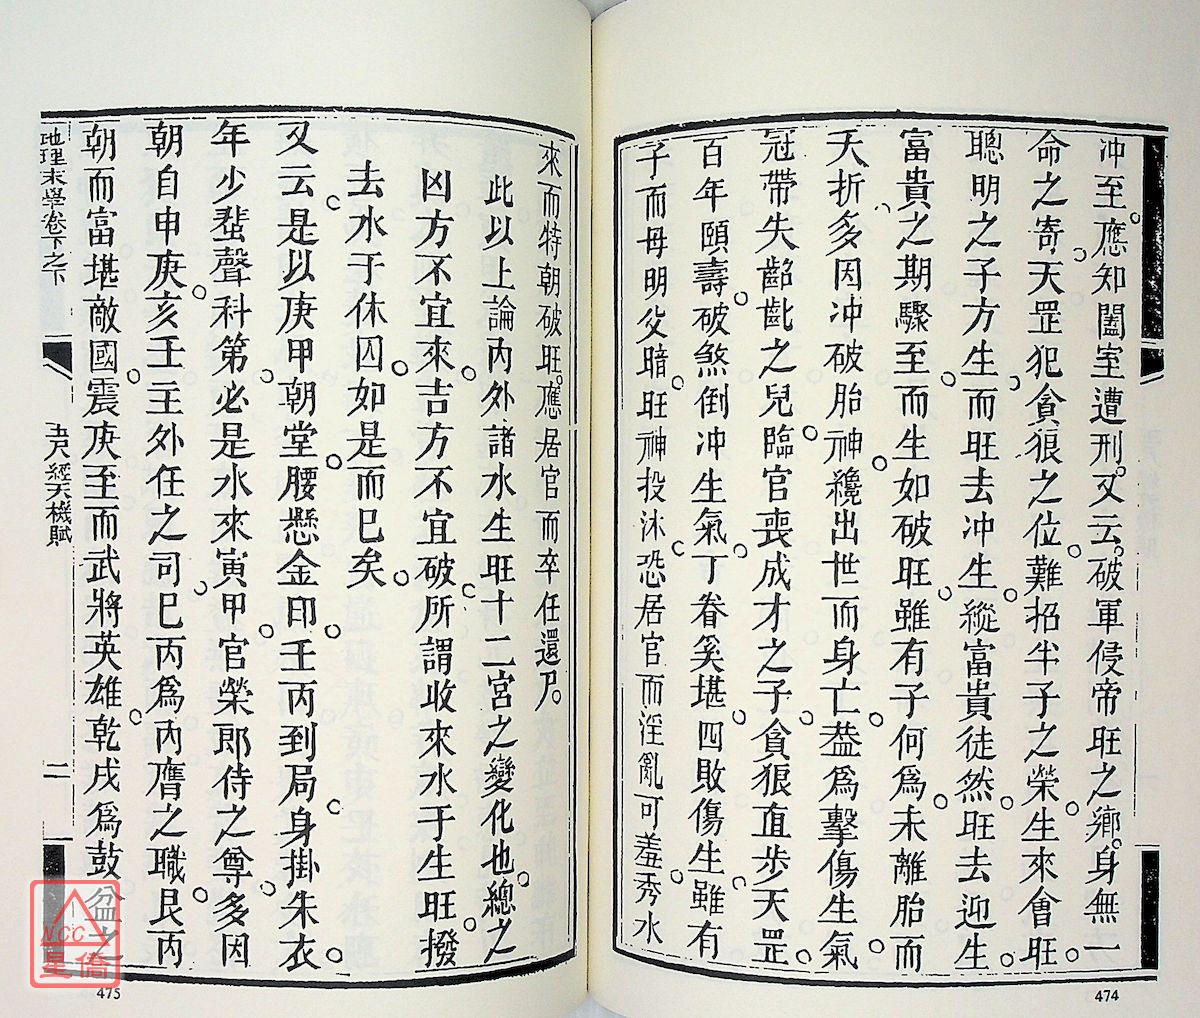 冲至應知闔室遭刑又云破軍侵帝旺之鄉身無一
命之寄天罡犯貪狼之位難招半子之榮生來會旺
聰明之子方生而旺去冲生縱富貴徒然旺去迎生
富貴之期驟至而生如破旺雖有子何爲未離胎而
夭折多因冲破胎神纔出世而身亡葢爲擊傷生氣
冠帶失齠齔之兒臨官喪成才之子貪狼直步天罡
百年頤壽破煞倒冲生氣丁眷奚堪四敗傷生雖有
子而母明父暗旺神投沐恐居官而淫亂可羞秀水
474
來而特朝破旺應居官而卒任還尸
此以上論內外諸水生旺十二宮之變化也總之
凶方不宜來吉方不宜破所謂收來水于生旺撥
去水于休囚如是而巳矣
又云是以庚甲朝堂腰懸金印壬丙到局身掛朱衣
年少蜚聲科第必是水來寅甲官榮郎侍之尊多因
朝自申庚亥壬主外任之司巳丙爲內膺之職艮丙
朝而富堪敵國震庚至而武將英雄乾戌爲鼓盆之
地理末學卷下之下
玉尺經天機賦
二
475
NCC
星僑